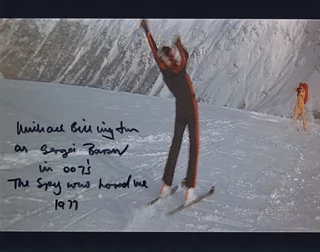 Michael Billington
as Sergei Barsov
in 007's
The Spy who Loved me
1977